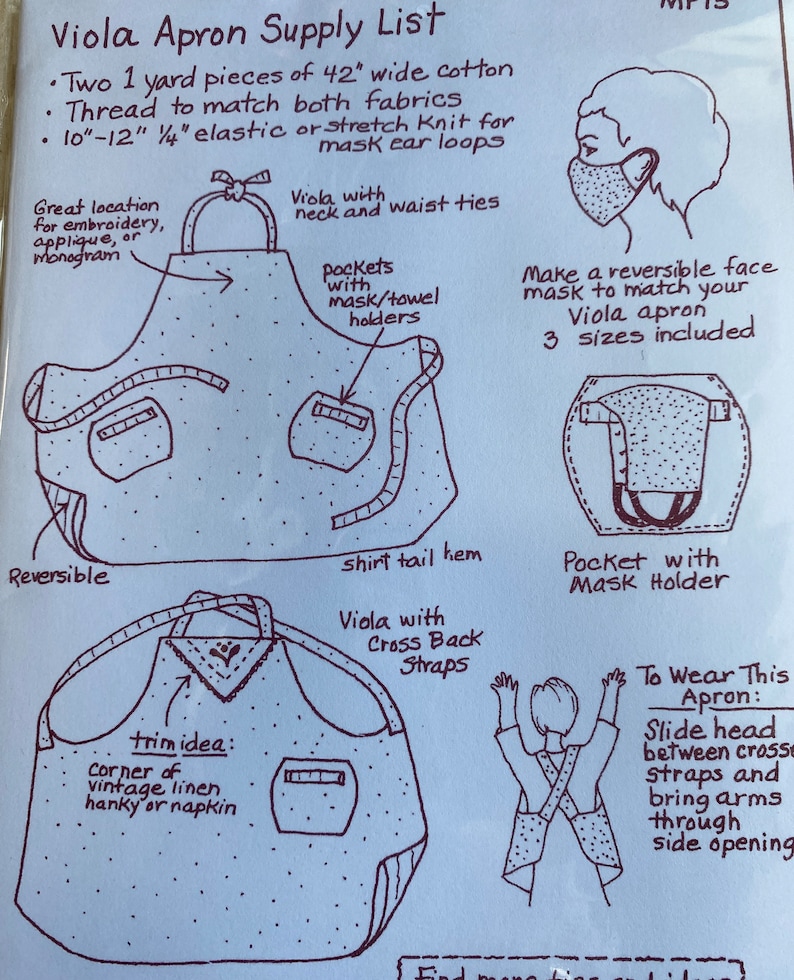 MP15
Viola Apron Supply List
• Two 1 yard pieces of 42" wide cotton
• Thread to match both fabrics
• 10"-12" 1/4" elastic or stretch Knit for
mask ear loops
Great location
for embroidery,
applique, or
monogram
Viola with
neck and waist ties
pockets
with
mask/towel
holders
Make a reversible face
mask to match your
Viola apron
3 sizes included
Reversible
shirt tail hem
Pocket with
Mask Holder
Viola with
Cross Back
Straps
trim idea:
Corner of
vintage linen
hanky or napkin
To Wear This
Apron:
Slide head
between cross
straps and
bring arms
through
side opening
Find more